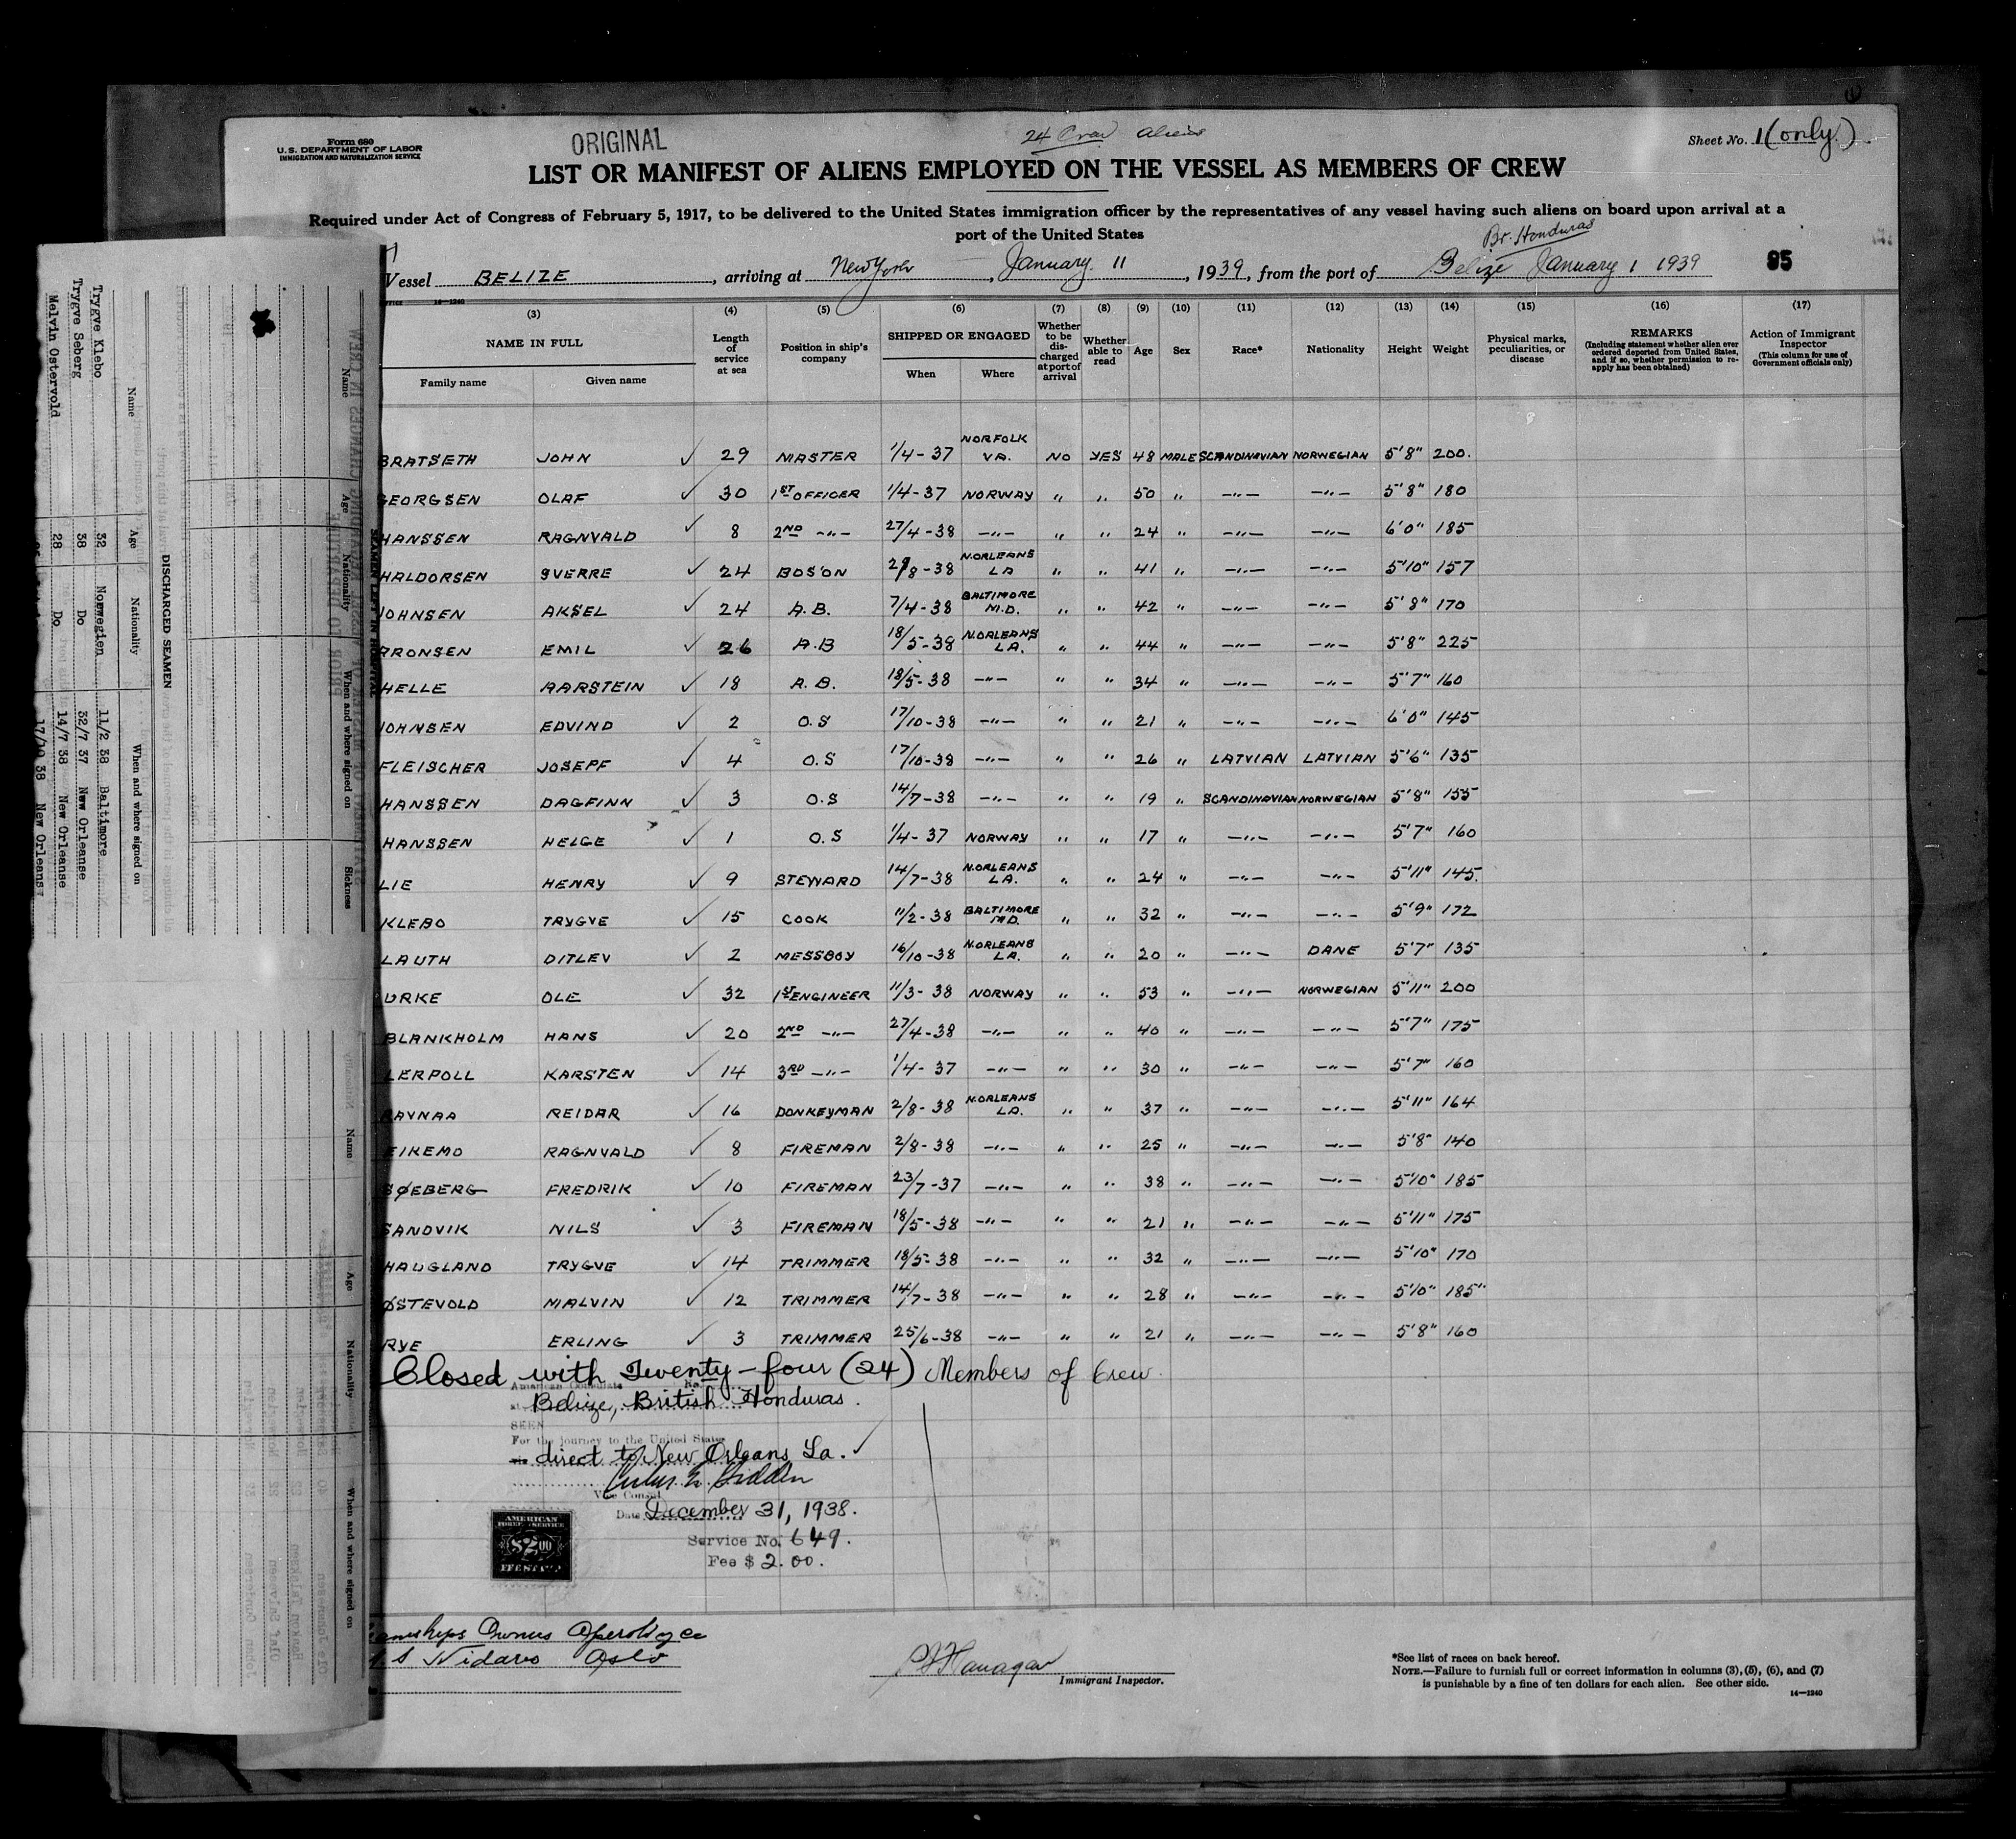 Form 680
U.S. DEPARTMENT OF LABOR
IMMIGRATION AND NATURALIZATION SERVICE
ORIGINAL
24 Crew Aliens
Sheet No. 1 (only.)
LIST OR MANIFEST OF ALIENS EMPLOYED ON THE VESSEL AS MEMBERS OF CREW
Required under Act of Congress of February 5, 1917, to be delivered to the United States immigration officer by the representatives of any vessel having such aliens on board upon arrival at a
port of the United States
Br. Honduras
Vessel BELIZE, arriving at New York, January 11, 1939, from the port of Belize January 1 1939
85
14—1240
(3) (4) (5) (6) (7) (8) (9) (10) (11) (12) (13) (14) (15) (16) (17)
NAME IN FULL Length of service at sea Position in ship's company SHIPPED OR ENGAGED Whether to be discharged at port of arrival Whether able to read Age Sex Race* Nationality Height Weight Physical marks, peculiarities, or disease REMARKS (Including statement whether alien ever ordered deported from United States, and if so, whether permission to reapply has been obtained) Action of Immigrant Inspector (This column for use of Government officials only)
Family name Given name When Where
BRATSETH JOHN ✓ 29 MASTER 1/4-37 NORFOLK VA. NO YES 48 MALE SCANDINAVIAN NORWEGIAN 5'8" 200.
GEORGSEN OLAF ✓ 30 1ST OFFICER 1/4-37 NORWAY " " 50 " —"— —"— 5'8" 180
HANSSEN RAGNVALD ✓ 8 2ND —"— 27/4-38 —"— " " 24 " —"— —"— 6'0" 185
HALDORSEN SVERRE ✓ 24 BOS'ON 8-38 N.ORLEANS LA " " 41 " —"— —"— 5'10" 157
JOHNSEN AKSEL ✓ 24 A.B. 7/4-38 BALTIMORE M.D. " " 42 " —"— —"— 5'8" 170
ARONSEN EMIL ✓ 26 A.B 18/5-38 N.ORLEANS LA. " " 44 " —"— —"— 5'8" 225
HELLE AARSTEIN ✓ 18 A.B. 18/5-38 —"— " " 34 " —"— —"— 5'7" 160
JOHNSEN EDVIND ✓ 2 O.S 17/10-38 —"— " " 21 " —"— —"— 6'0" 145
FLEISCHER JOSEPF ✓ 4 O.S 17/10-38 —"— " " 26 " LATVIAN LATVIAN 5'6" 135
HANSSEN DAGFINN ✓ 3 O.S 14/7-38 —"— " " 19 " SCANDINAVIAN NORWEGIAN 5'8" 155
HANSSEN HELGE ✓ 1 O.S 1/4-37 NORWAY " " 17 " —"— —"— 5'7" 160
LIE HENRY ✓ 9 STEWARD 14/7-38 N.ORLEANS LA. " " 24 " —"— —"— 5'11" 145.
KLEBO TRYGVE ✓ 15 COOK 11/2-38 BALTIMORE MD. " " 32 " —"— —"— 5'9" 172
LAUTH DITLEV ✓ 2 MESSBOY 16/10-38 N.ORLEANS LA. " " 20 " —"— DANE 5'7" 135
URKE OLE ✓ 32 1ST ENGINEER 11/3-38 NORWAY " " 53 " —"— NORWEGIAN 5'11" 200
BLANKHOLM HANS ✓ 20 2ND —"— 27/4-38 —"— " " 40 " —"— —"— 5'7" 175
LERPOLL KARSTEN ✓ 14 3RD —"— 1/4-37 —"— " " 30 " —"— —"— 5'7" 160
RAVNAA REIDAR ✓ 16 DONKEYMAN 2/8-38 N.ORLEANS LA. " " 37 " —"— —"— 5'11" 164
EIKEMO RAGNVALD ✓ 8 FIREMAN 2/8-38 —"— " " 25 " —"— —"— 5'8" 140
SØEBERG FREDRIK ✓ 10 FIREMAN 23/7-37 —"— " " 38 " —"— —"— 5'10" 185
SANDVIK NILS ✓ 3 FIREMAN 18/5-38 —"— " " 21 " —"— —"— 5'11" 175
HAUGLAND TRYGVE ✓ 14 TRIMMER 18/5-38 —"— " " 32 " —"— —"— 5'10" 170
ØSTEVOLD MALVIN ✓ 12 TRIMMER 14/7-38 —"— " " 28 " —"— —"— 5'10" 185
RYE ERLING ✓ 3 TRIMMER 25/6-38 —"— " " 21 " —"— —"— 5'8" 160
Closed with Twenty-four (24) Members of Crew
American Consulate No.
at Belize, British Honduras.
SEEN
For the journey to the United States
via direct to New Orleans, La. ✓
Vice Consul
Date December 31, 1938.
Service No. 649.
Fee $ 2.00.
AMERICAN
FOREIGN SERVICE
$2.00
FEE STAMP
Owners
Nidaros Oslo
Immigrant Inspector.
*See list of races on back hereof.
NOTE.—Failure to furnish full or correct information in columns (3), (5), (6), and (7)
is punishable by a fine of ten dollars for each alien. See other side.
14—1240
SEAMEN LEFT IN HOSPITAL
Name Age Nationality When and where signed on Sickness
DISCHARGED SEAMEN
Name Age Nationality When and where signed on
Trygve Klebo 32 Norwegien 11/2 38 Baltimore
Trygve Seberg 38 Do 32/7 37 New Orleanse
Melvin Ostervold 28 Do 14/7 38 New Orleanse
17/10 38 New Orleans
Name Age Nationality When and where signed on